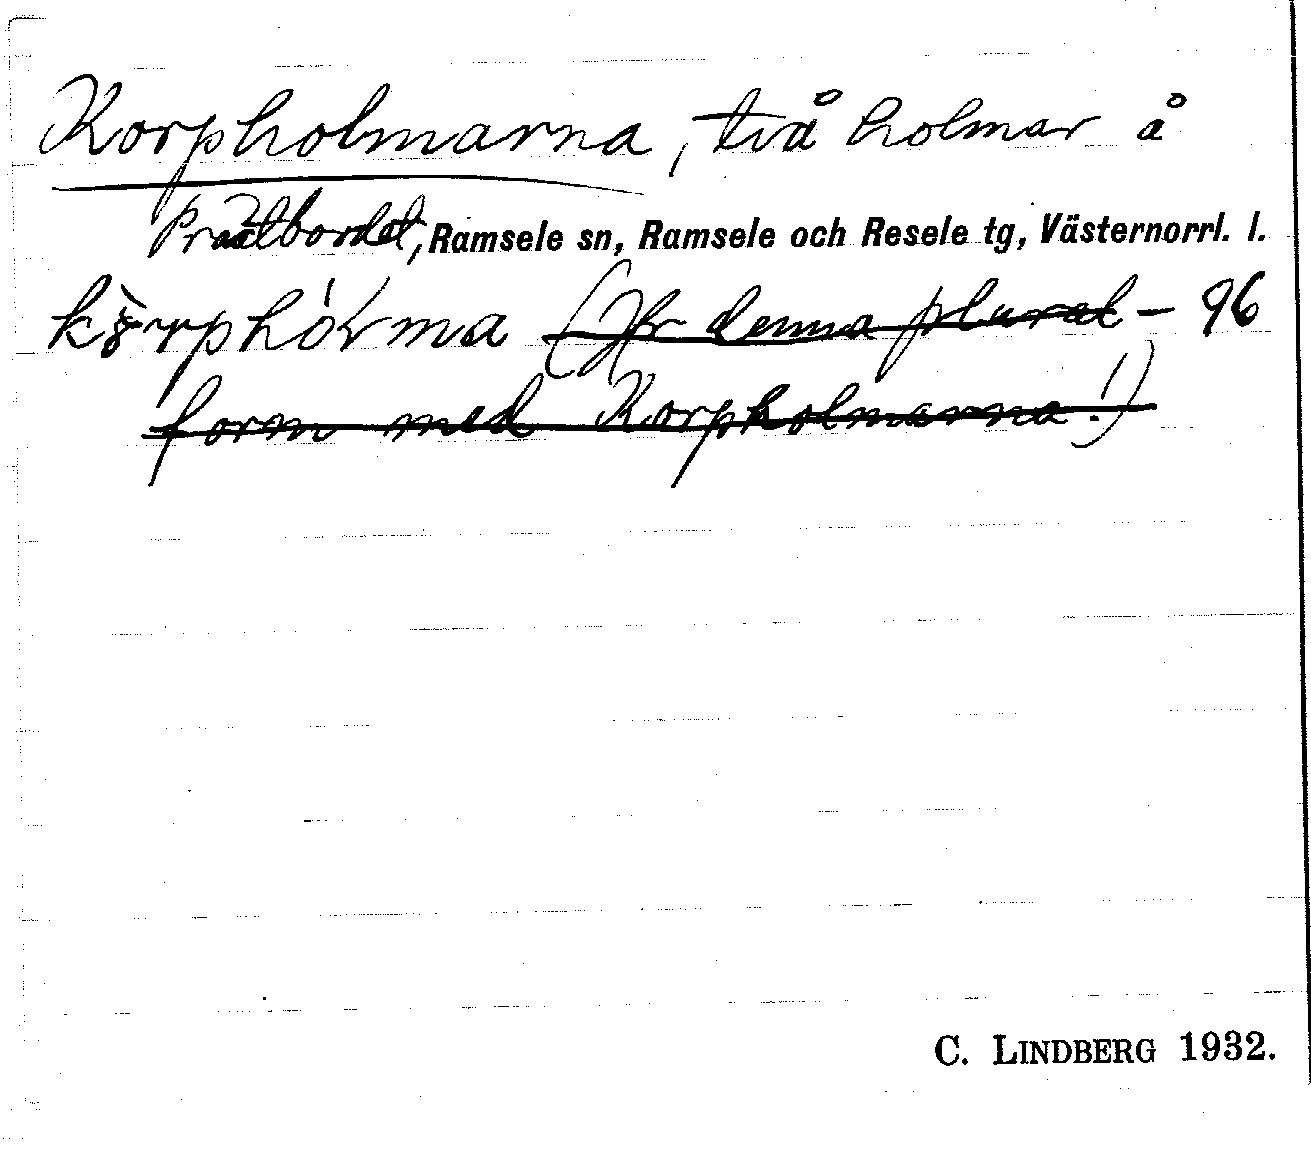 Korpholmarna, två holmar å
Prästbordet, Ramsele sn, Ramsele och Resele tg, Västernorrl. l.
(Jfr denna plural- 96
form med Korpholmarna!)
C. LINDBERG 1932.